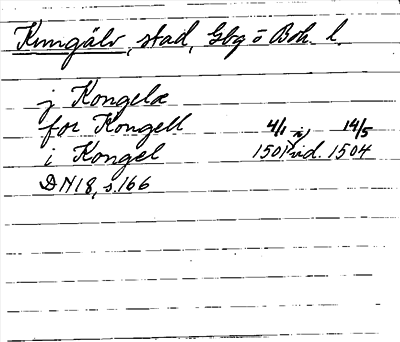 Kungälv, stad, Gbg o Boh. l.
j Kongelæ
for Kongell 4/1 14/5
i Kongel 1501 vid. 1504
DN 18, s. 166